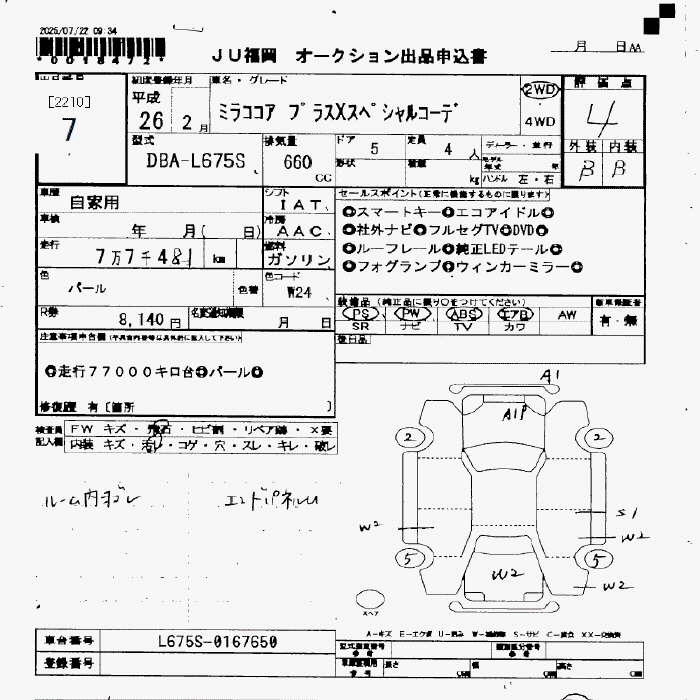 2025/07/22 09:34
*00184772*
JU福岡 オークション出品申込書
月 日
[2210]
7
初度登録年月
平成
26 2月
車名・グレード
ミラココア プラスXスペシャルコーデ
2WD
4WD
評価点
4
外装 内装
B B
型式
DBA-L675S
排気量
660
CC
ドア
5
定員
4人
形状
積載
kg
ディーラー・並行
モデル年式 年
ハンドル 左・右
車歴
自家用
シフト
IAT
車検
年 月( 日)
冷房
AAC
走行
7万7千481 km
燃料
ガソリン
色
パール
色替
色コード
W24
R券
8,140 円
月 日
セールスポイント(正常に機能するものに限ります)
●スマートキー●エコアイドル●
●社外ナビ●フルセグTV●DVD●
●ルーフレール●純正LEDテール●
●フォグランプ●ウィンカーミラー●
装備品 (純正品に限り○をつけてください)
PS PW ABS エアB AW
SR ナビ TV カワ
新車保証書
有・無
後日品
注意事項申告欄
●走行77000キロ台●パール●
修復歴 有 [箇所 ]
検査員記入欄
FW キズ・飛石・ヒビ割・リペア跡・X要
内装 キズ・汚れ・コゲ・穴・スレ・キレ・破レ
ルーム内ヨゴレ
エンドパネルU
A1
A1P
2
2
W2
S1
W2
5
5
W2
W2
スペア
A-キズ E-エクボ U-凹み W-補修跡 S-サビ C-腐食 XX-交換済
車台番号
L675S-0167650
登録番号
型式指定番号
類別区分番号
長さ cm
幅 cm
高さ cm